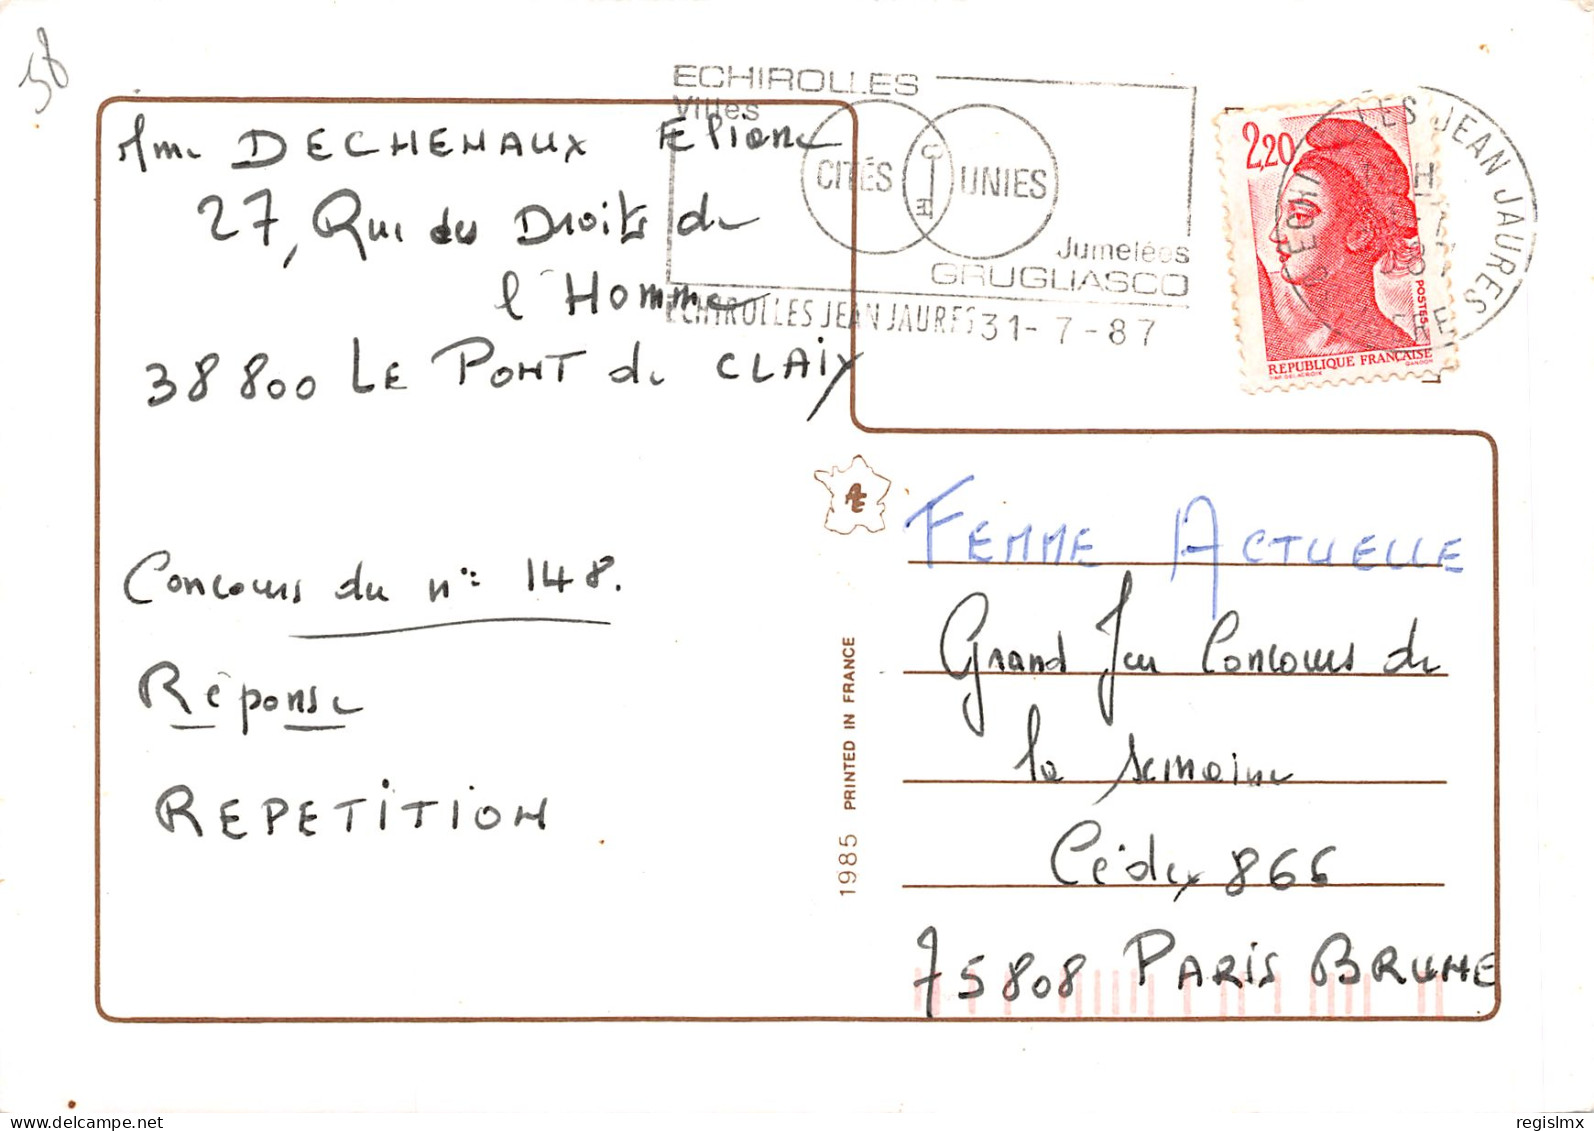 58
Mme DECHENAUX Eliane
27, Rue des Droits de
l'Homme
38 800 LE PONT de CLAIX
Concours du n°: 148.
Réponse
REPETITION
ECHIROLLES
Villes
CITÉS UNIES
Jumelées
GRUGLIASCO
ECHIROLLES JEAN JAURES 31-7-87
2,20
POSTES
REPUBLIQUE FRANÇAISE
GANDON
LES JEAN JAURES
AE
FEMME ACTUELLE
Grand Jeu Concours de
la semaine
Cédex 866
75808 PARIS BRUNE
1985 PRINTED IN FRANCE
regislmx